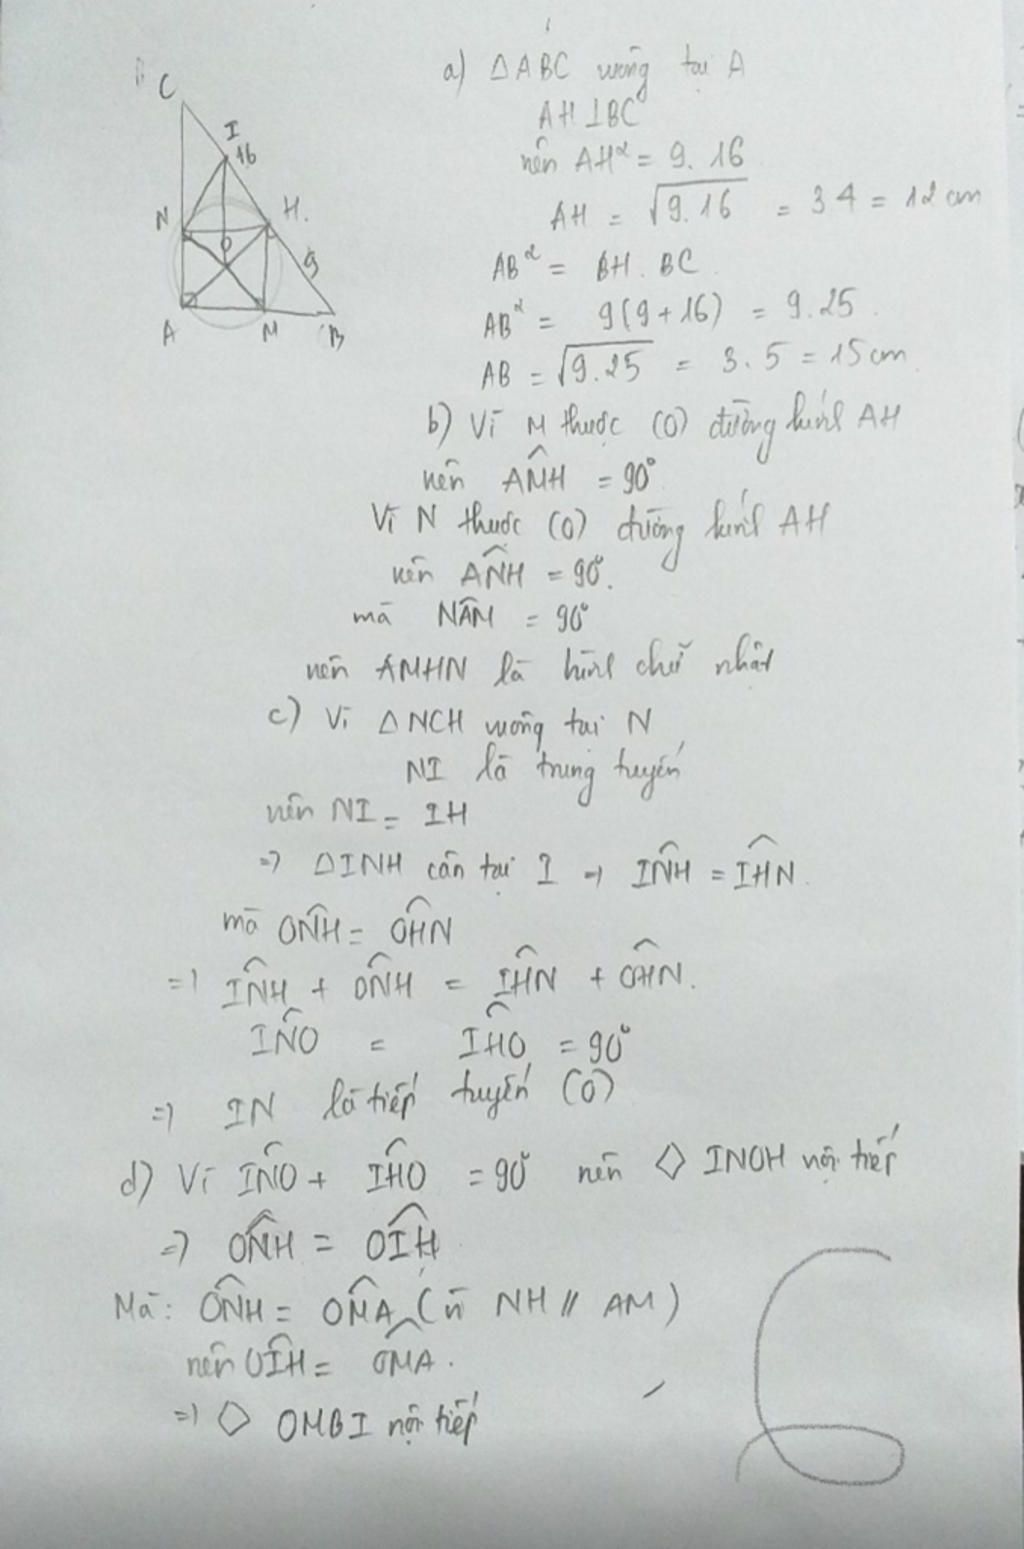 C
I
16
N
H.
O
9
A
M
B
a) △ABC vuông tại A
AH ⊥ BC
nên AH² = 9. 16
AH = √9.16 = 3 4 = 12 cm
AB² = BH . BC
AB² = 9(9+16) = 9.25
AB = √9.25 = 3.5 = 15cm
b) Vì M thuộc (O) đường kính AH
nên AM̂H = 90°
Vì N thuộc (O) đường kính AH
nên AN̂H = 90°.
mà NÂM = 90°
nên AMHN là hình chữ nhật
c) Vì △NCH vuông tại N
NI là trung tuyến
nên NI = IH
=> △INH cân tại I → IN̂H = IĤN.
mà ON̂H = OĤN
=> IN̂H + ON̂H = IĤN + OĤN.
IN̂O = IĤO = 90°
=> IN là tiếp tuyến (O)
d) Vì IN̂O + IĤO = 90° nên ◇ INOH nội tiếp
=> ON̂H = OÎH
Mà: ON̂H = OM̂A (vì NH // AM)
nên OÎH = OM̂A.
=> ◇ OMBI nội tiếp